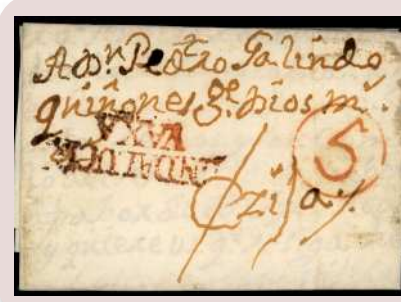 A Dn. Pedro Galindo
quiñones ge. Dios ms.
BAXA
ANDALUCIA
5
Ezija